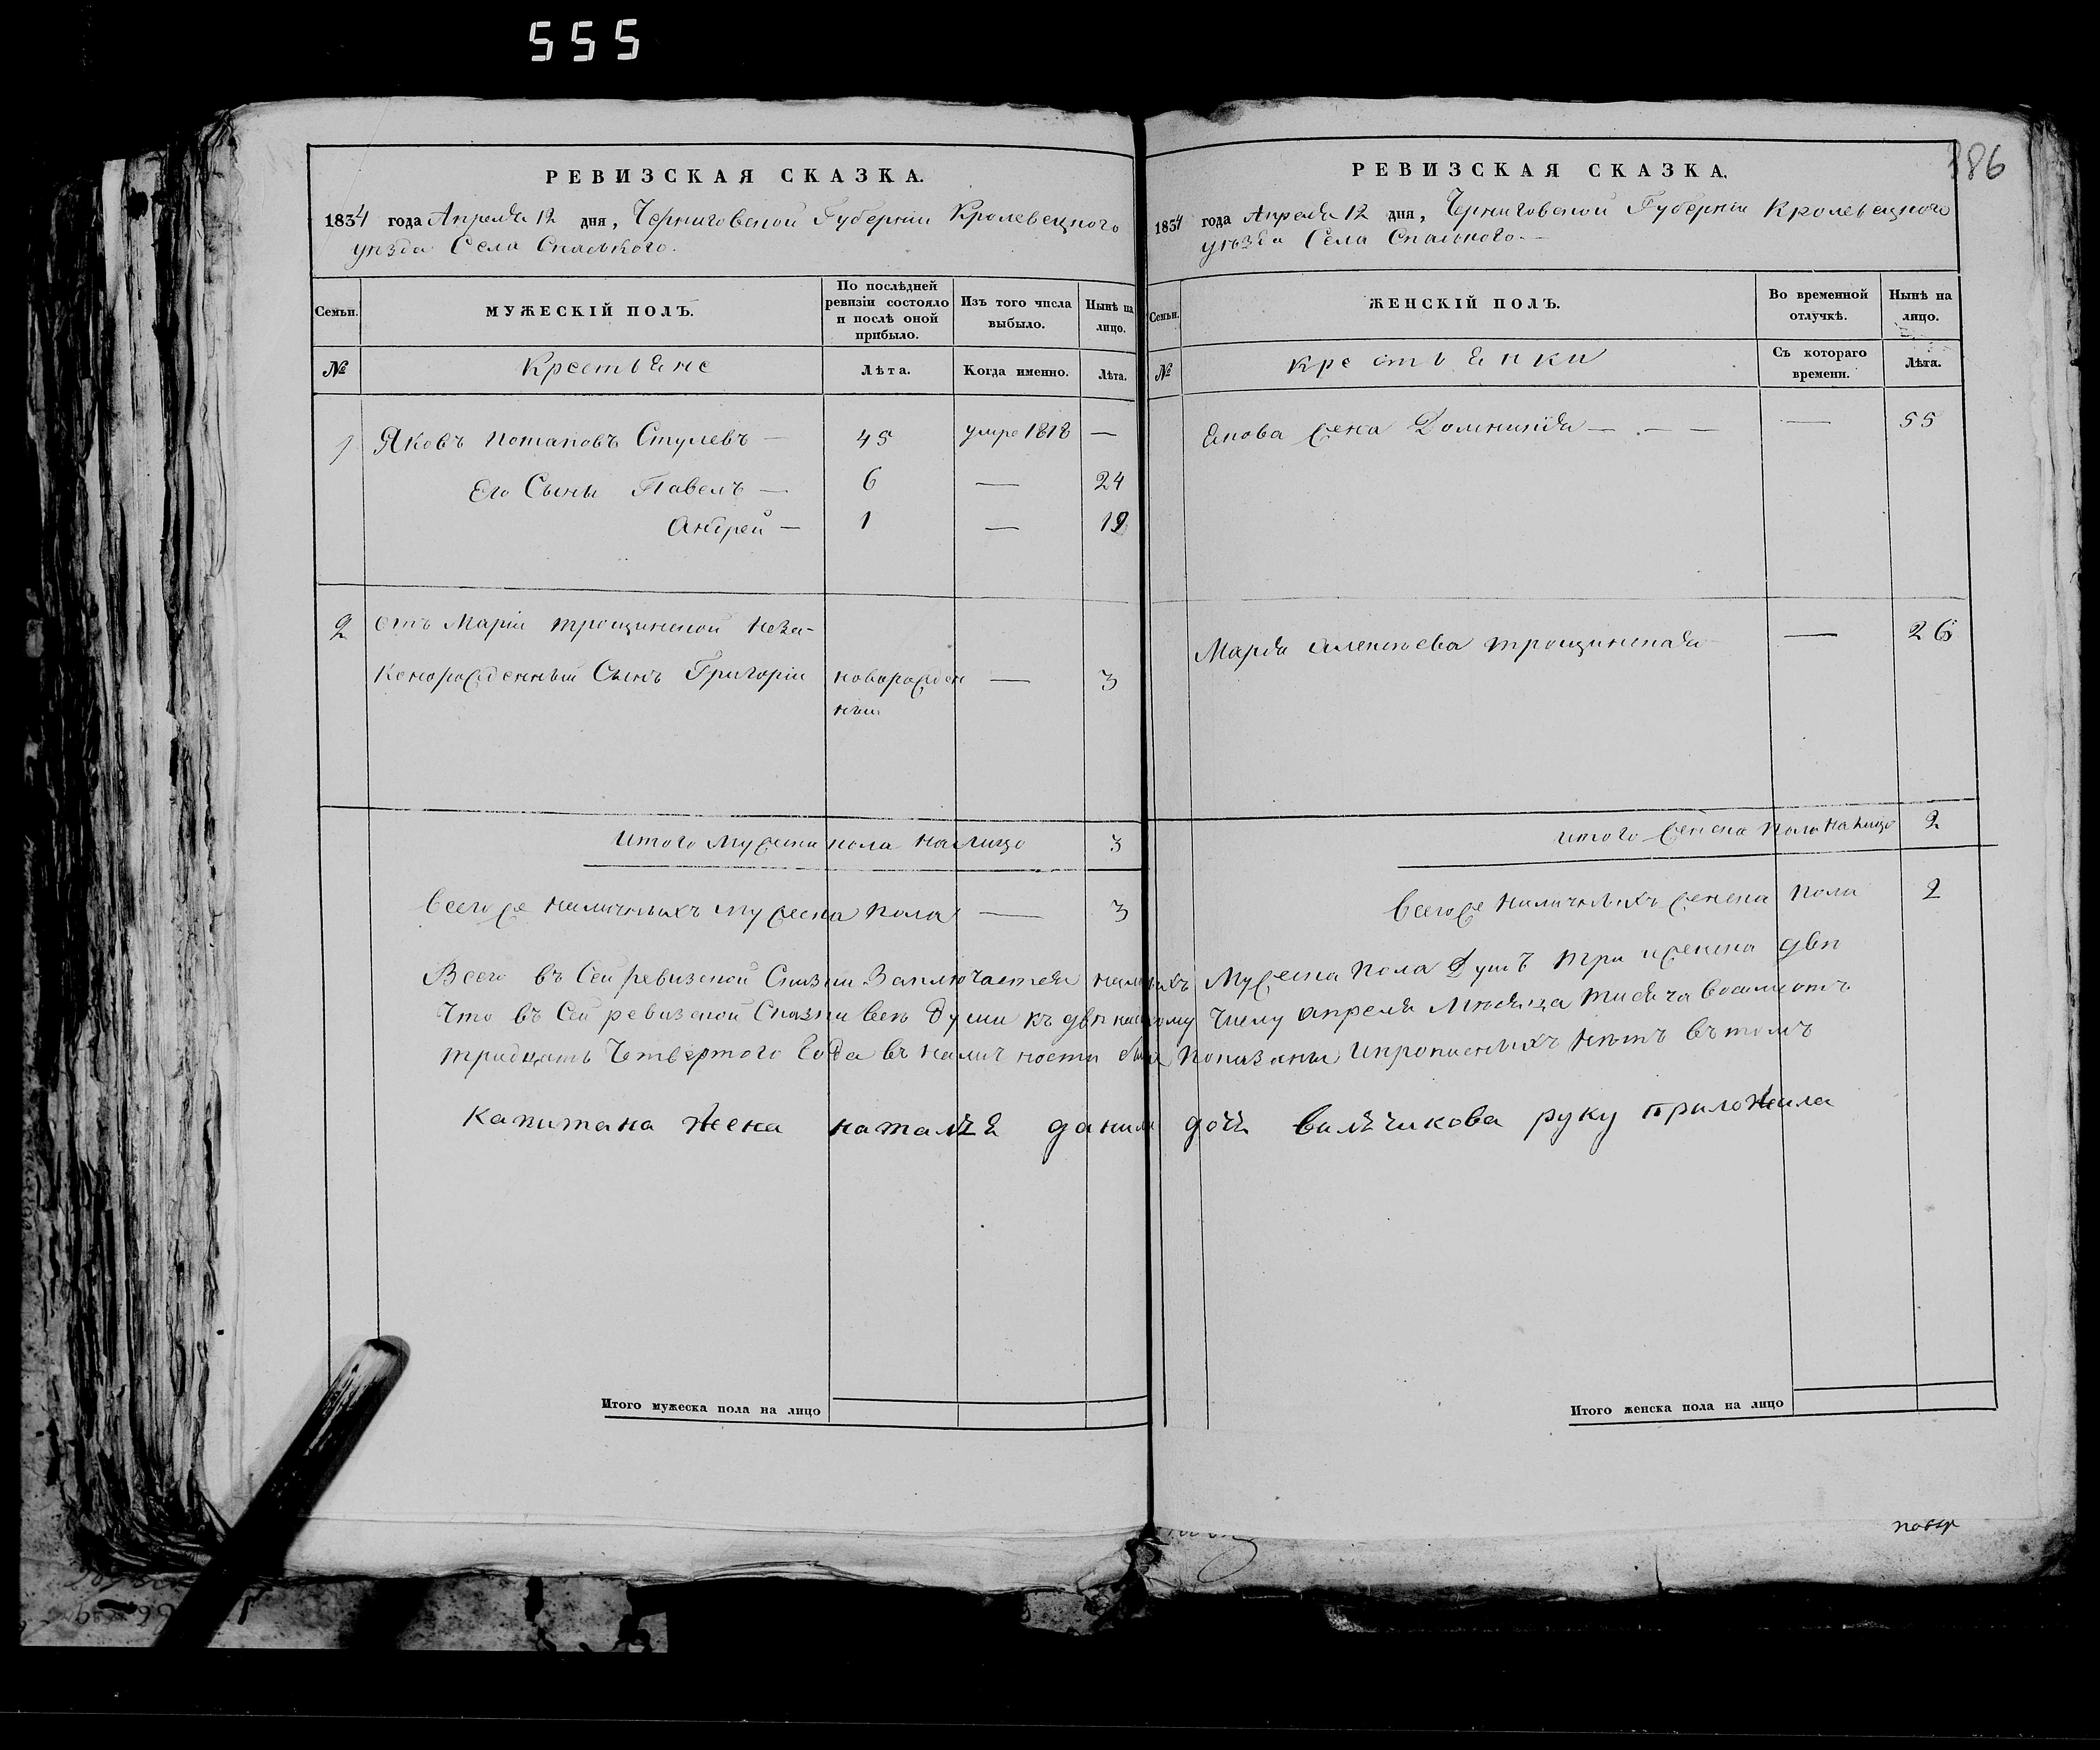 555
РЕВИЗСКАЯ СКАЗКА.
1834 года Апреля 12 дня, Черниговской Губернии Кролевецкого
уезда Села Спаського.
Семьи.
МУЖЕСКІЙ ПОЛЪ.
По послѣдней ревизіи состояло и послѣ оной прибыло.
Изъ того числа выбыло.
Нынѣ на лицо.
№
Крестьяне
Лѣта.
Когда именно.
Лѣта.
1 Яковъ Потаповъ Стулевъ — 45 умре 1818 —
Его Сыны Павелъ — 6 — 24
Андрей — 1 — 19
2 отъ Маріи Трощинской неза-
конорожденный Сынъ Григорій новорожден ный — 3
Итого Мужеска пола на лицо 3
Всего же наличныхъ мужеска пола — 3
РЕВИЗСКАЯ СКАЗКА.
186
1834 года Апреля 12 дня, Черниговской Губернии Кролевецкого
уезда Села Спаського.—
Семьи.
ЖЕНСКІЙ ПОЛЪ.
Во временной отлучкѣ.
Нынѣ на лицо.
№
крестьянки
Съ котораго времени.
Лѣта.
Якова жена Домникія — — — 55
Марья Алексеева Трощинская — 26
итого женска пола на лицо 2
Всего же наличныхъ женска пола 2
Всего въ Сей ревизской Сказки Заключается наличныхъ Мужеска пола Душъ три и женска две
Что въ Сей ревизской Сказки все души къ двенадцатому числу апреля Месяца тисяча восемсотъ
тридцать Четвертого Года въ наличности показаны и прописныхъ нетъ въ томъ
капитана жена наталья данила дочь руку приложила
Итого мужеска пола на лицо
Итого женска пола на лицо